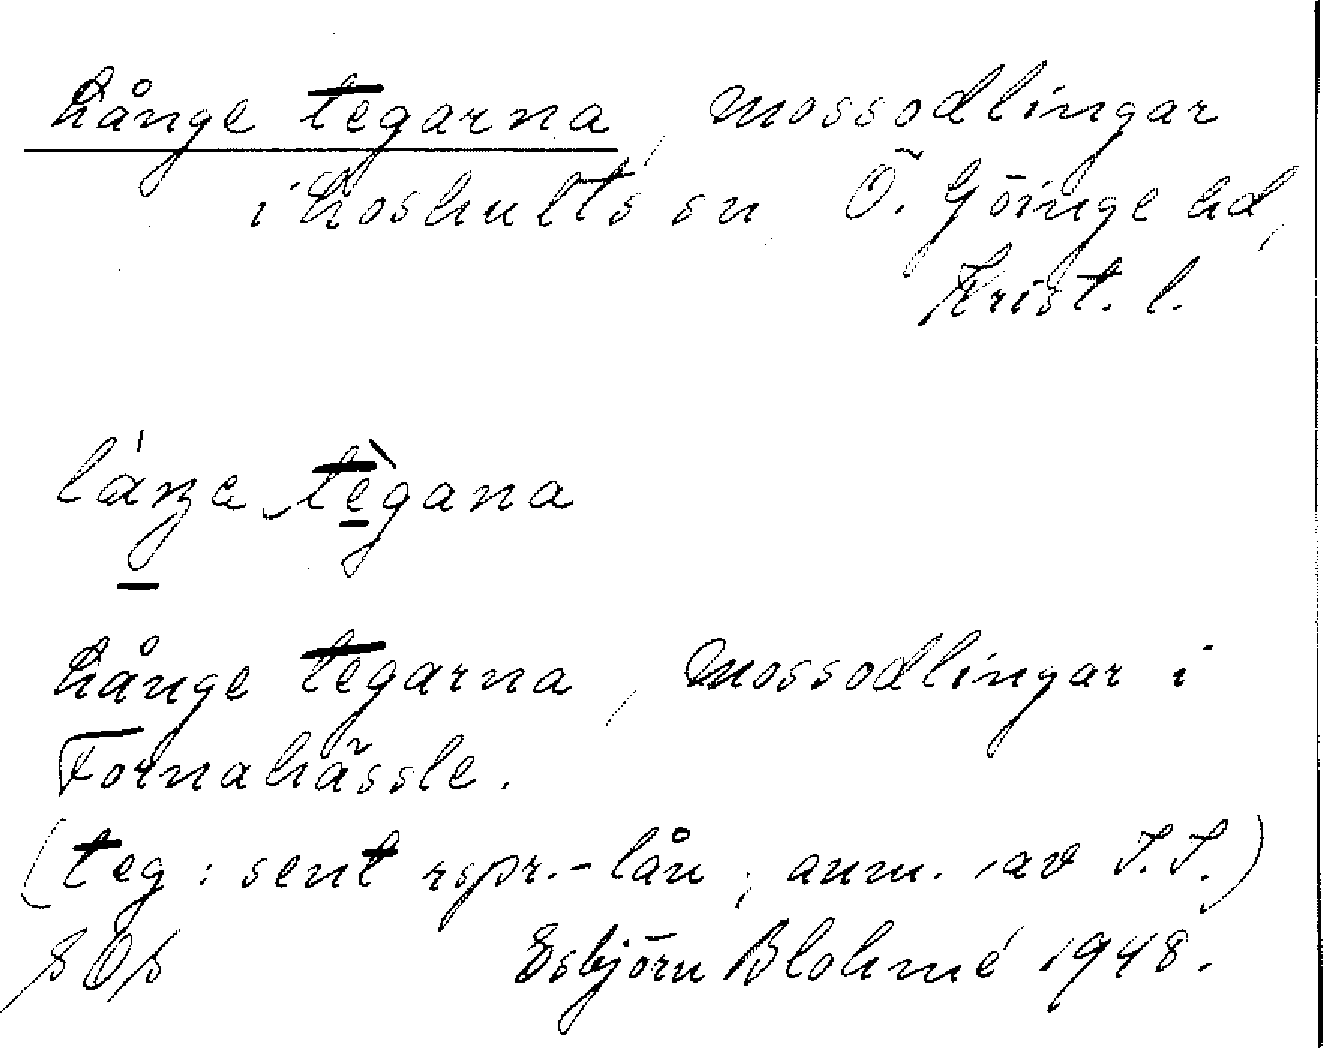 Långe tegarna, mossodlingar
i Loshults sn, Ö. Göinge hd,
Krist. l.
Långe tegarna, mossodlingar i
Fornahässle.
(teg: sent rspr.-lån; anm. av I.I.)
Esbjörn Blohmé 1948.